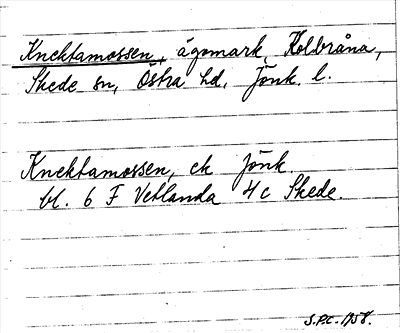 Knektamossen, ägomark, Kolbråna,
Skede sn, Östra hd, Jönk. l.
Knektamossen, ek Jönk.
bl. 6 F Vetlanda 4c Skede.
S.P.C. 1958.